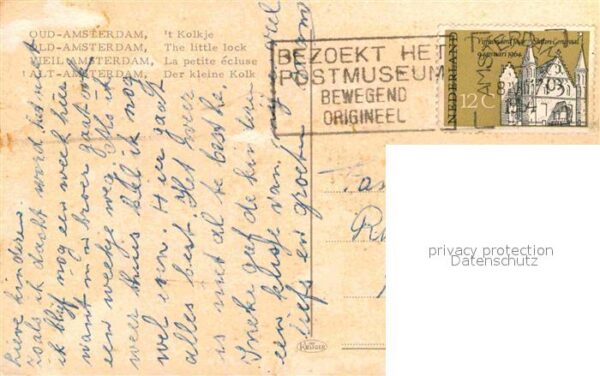 OUD-AMSTERDAM, 't Kolkje
OLD-AMSTERDAM, The little lock
VIEIL-AMSTERDAM, La petite écluse
ALT-AMSTERDAM, Der kleine Kolk
BEZOEKT HET
POSTMUSEUM
BEWEGEND
ORIGINEEL
NEDERLAND
12 C
Lieve kinderen.
zoals ik dacht word het
ik blijf nog een week hier
want m'n broer gaat ook
een weekje weg. Als ik
weer thuis bel ik nog
wel even. Hier gaat
alles best. Het weer
is niet al te best he.
Ineke geef de kinderen
een kusje van
liefs en groeten
privacy protection
Datenschutz
KRÜGER